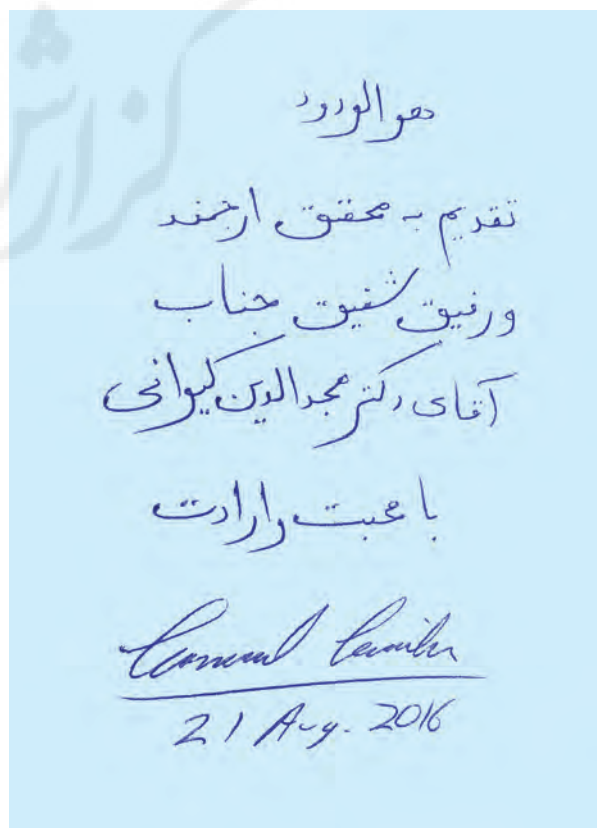 گزارش
هو الودود
تقدیم به محقق ارجمند
و رفیق شفیق جناب
آقای دکتر مجدالدین کیوانی
با محبت و ارادت
21 Aug. 2016